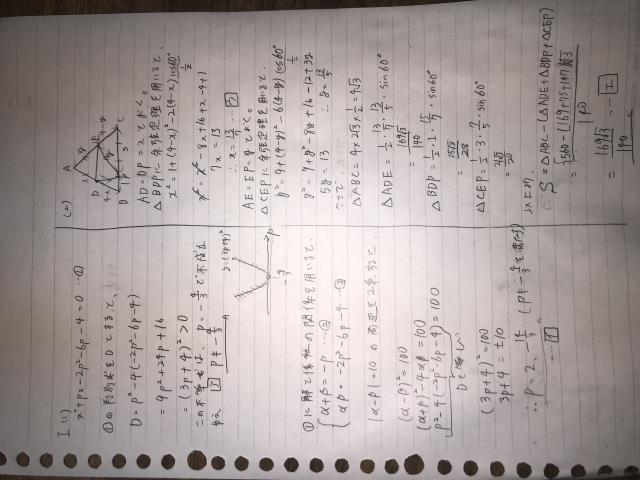 I (1)
x²+px-2p²-6p-4=0 …①
①の判別式をDとすると、
D=p²-4(-2p²-6p-4)
=9p²+24p+16
=(3p+4)²>0
この不等式は、p=-4/3で不成立
p≠-4/3
y=(3p+4)²
-4/3
p
①に解と係数の関係を用いると、
α+β=-p …②
αβ=-2p²-6p-4 …③
|α-β|=10の両辺を2乗すると、
(α-β)²=100
(α+β)²-4αβ=100
p²-4(-2p²-6p-4)=100
Dと等しい
(3p+4)²=100
3p+4=±10
∴p=2、-14/3 (p≠-4/3を満たす)
(2)
A
B
C
D
E
P
AD=DP=xとおく。
△BDPに余弦定理を用いると、
x²=1+(4-x)²-2(4-x)cos60°
x²=x²-8x+16+x-4+1
7x=13
∴x=13/7
AE=EP=yとおく。
△CEPに余弦定理を用いると、
y²=9+(4-y)²-6(4-y)cos60°
y²=9+y²-8y+16-12+3y
5y=13 ∴y=13/5
ここで
△ABC=4×2√3×1/2=4√3
△ADE=1/2・13/7・13/5・sin60°
=169√3/140
△BDP=1/2・1・15/7・sin60°
=15√3/28
△CEP=1/2・3・7/5・sin60°
=21√3/20
以上より
S=△ABC-(△ADE+△BDP+△CEP)